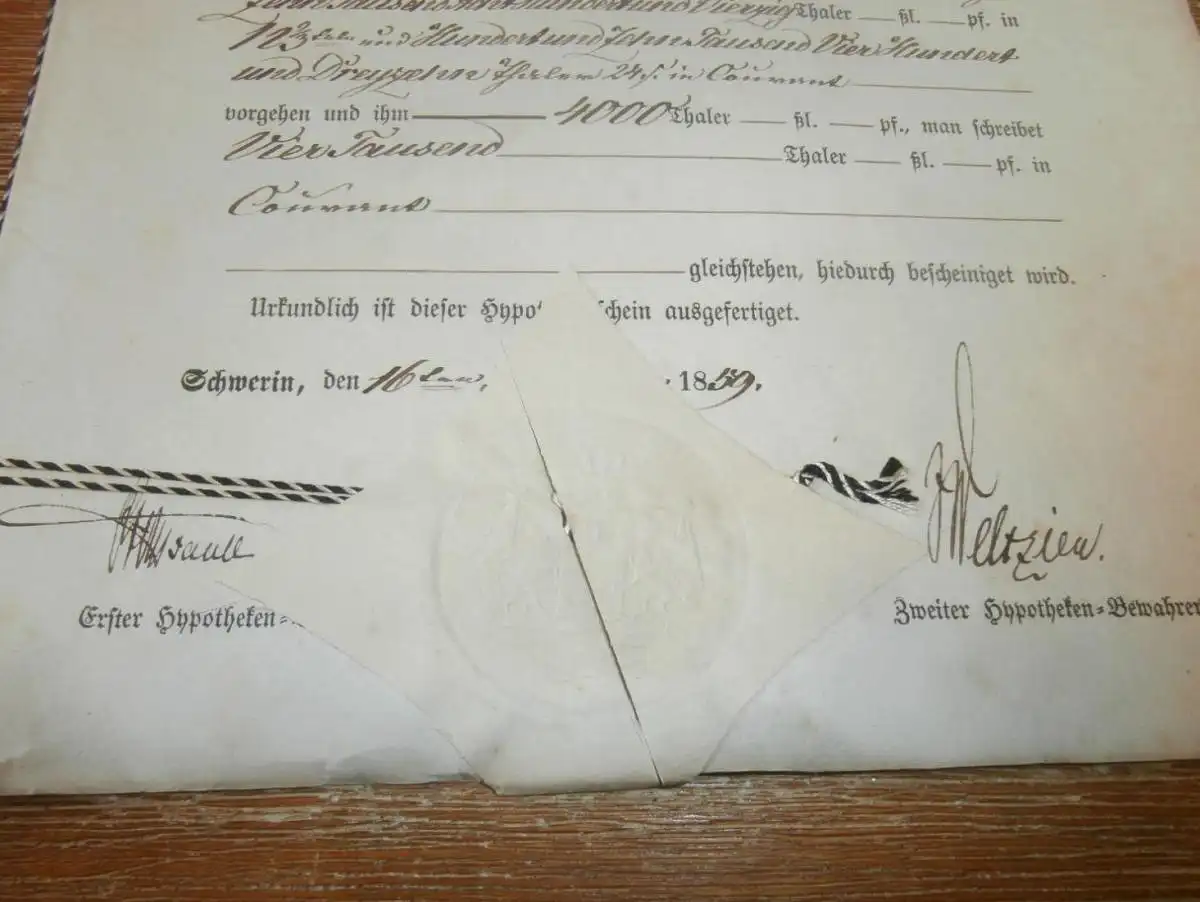 Zehn Tausend Acht Hundert und Vierzig Thaler — ßl. — pf. in
N 2/3 tel. und Hundert und Zehn Tausend Vier Hundert
und Dreyzehn Thaler 24 s. in Courant
vorgehen und ihm 4000 Thaler — ßl. — pf., man schreibet
Vier Tausend Thaler — ßl. — pf. in
Courant
gleichstehen, hiedurch bescheiniget wird.
Urkundlich ist dieser Hypo schein ausgefertiget.
Schwerin, den 16ten, 1859.
Weltzien.
Erster Hypotheken=
Zweiter Hypotheken=Bewahrer